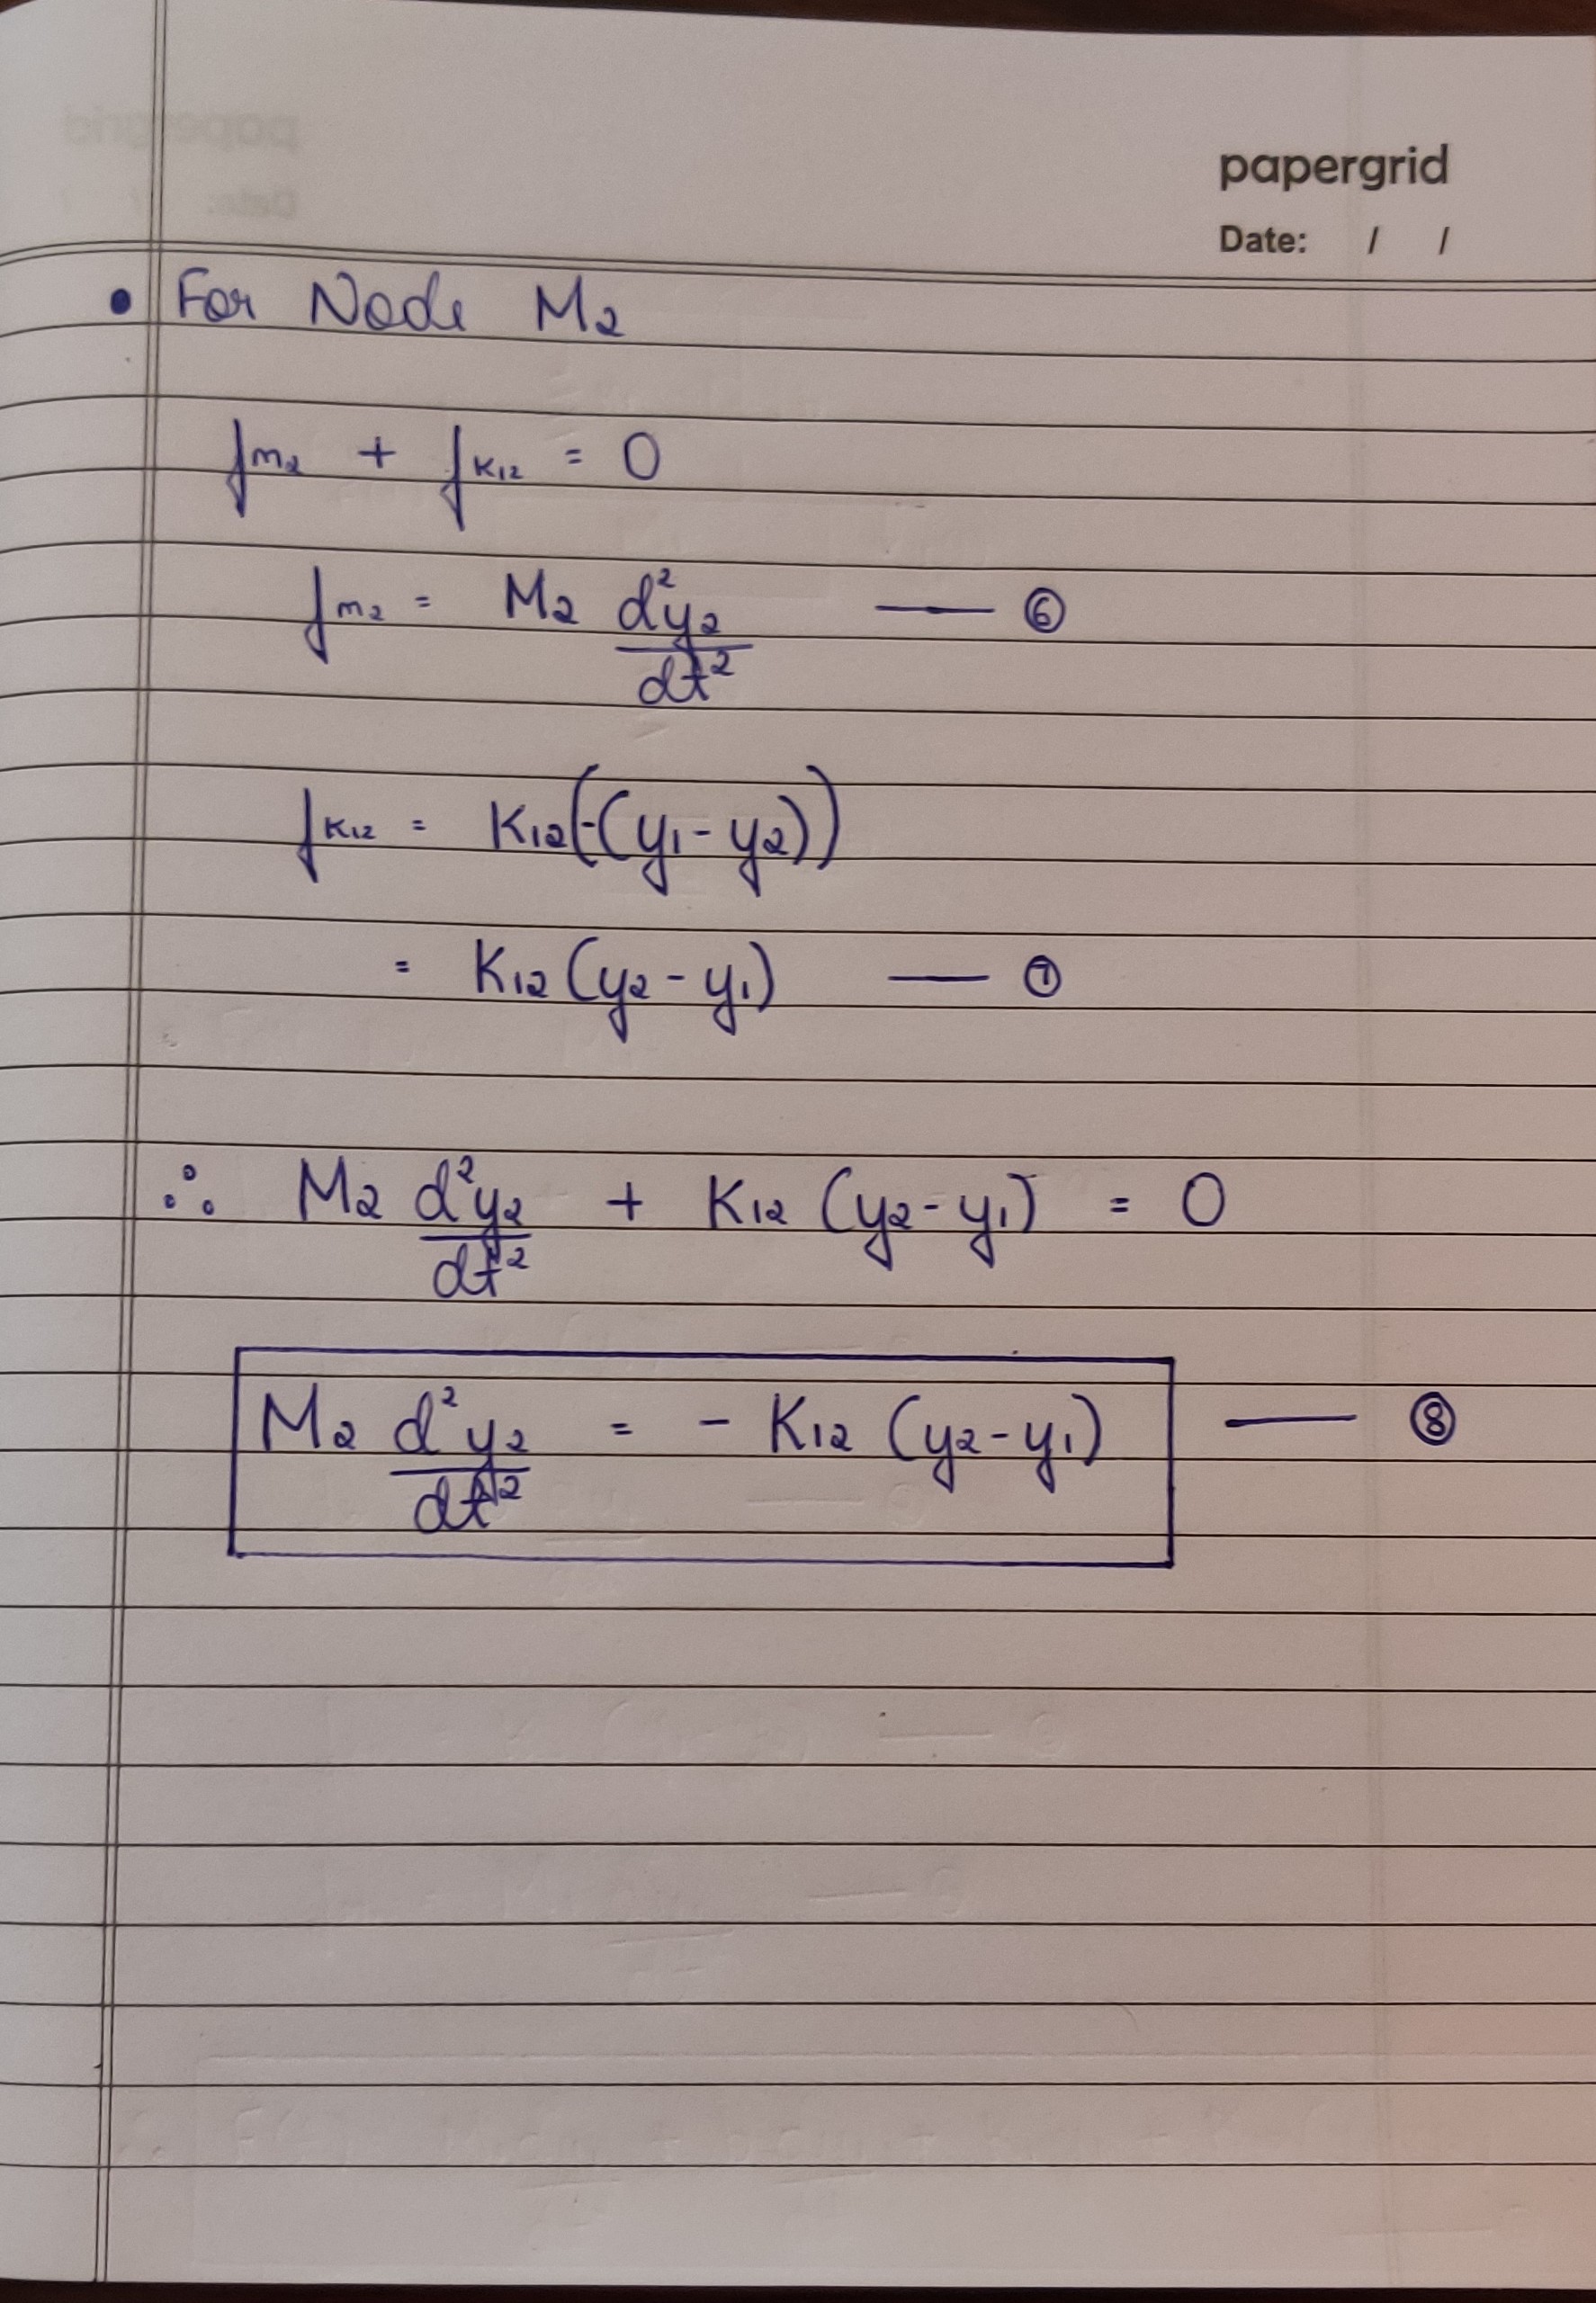 papergrid
Date: / /
• For Node M₂
fₘ₂ + fₖ₁₂ = 0
fₘ₂ = M₂ d²y₂/dt² — ⑥
fₖ₁₂ = K₁₂(-(y₁ - y₂))
= K₁₂ (y₂ - y₁) — ⑦
∴ M₂ d²y₂/dt² + K₁₂ (y₂ - y₁) = 0
M₂ d²y₂/dt² = - K₁₂ (y₂ - y₁) — ⑧